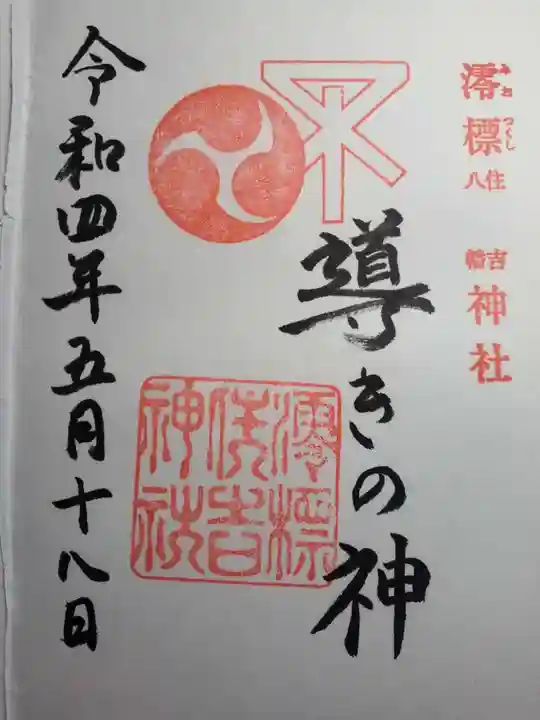 澪標住吉八幡神社
みおつくし
導きの神
澪標
住吉
神社
令和四年五月十八日